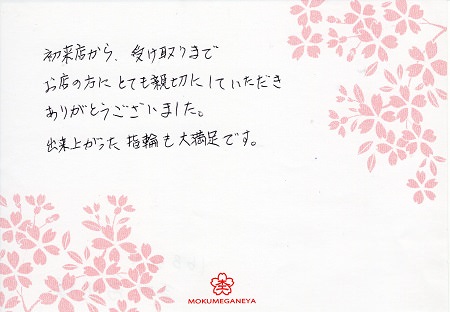 初来店から、受け取りまで
お店の方にとても親切にしていただき
ありがとうございました。
出来上がった指輪も大満足です。
MOKUMEGANEYA